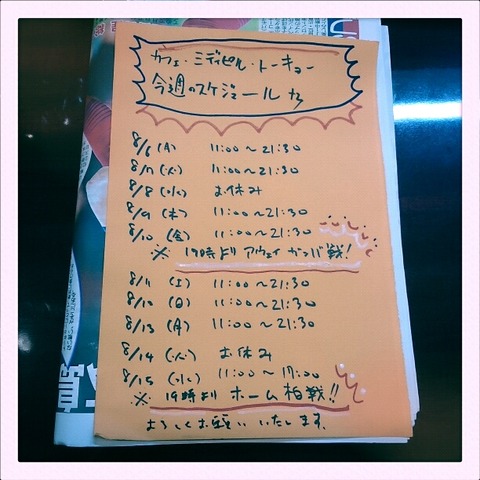 カフェ・ミディピル・トーキョー
今週のスケジュールカ
8/6(月) 11:00~21:30
8/7(火) 11:00~21:30
8/8(水) お休み
8/9(木) 11:00~21:30
8/10(金) 11:00~21:30
※19時より アウェイ ガンバ戦!
8/11(土) 11:00~21:30
8/12(日) 11:00~21:30
8/13(月) 11:00~21:30
8/14(火) お休み
8/15(水) 11:00~17:00
※19時より ホーム柏戦!!
よろしくお願いいたします。